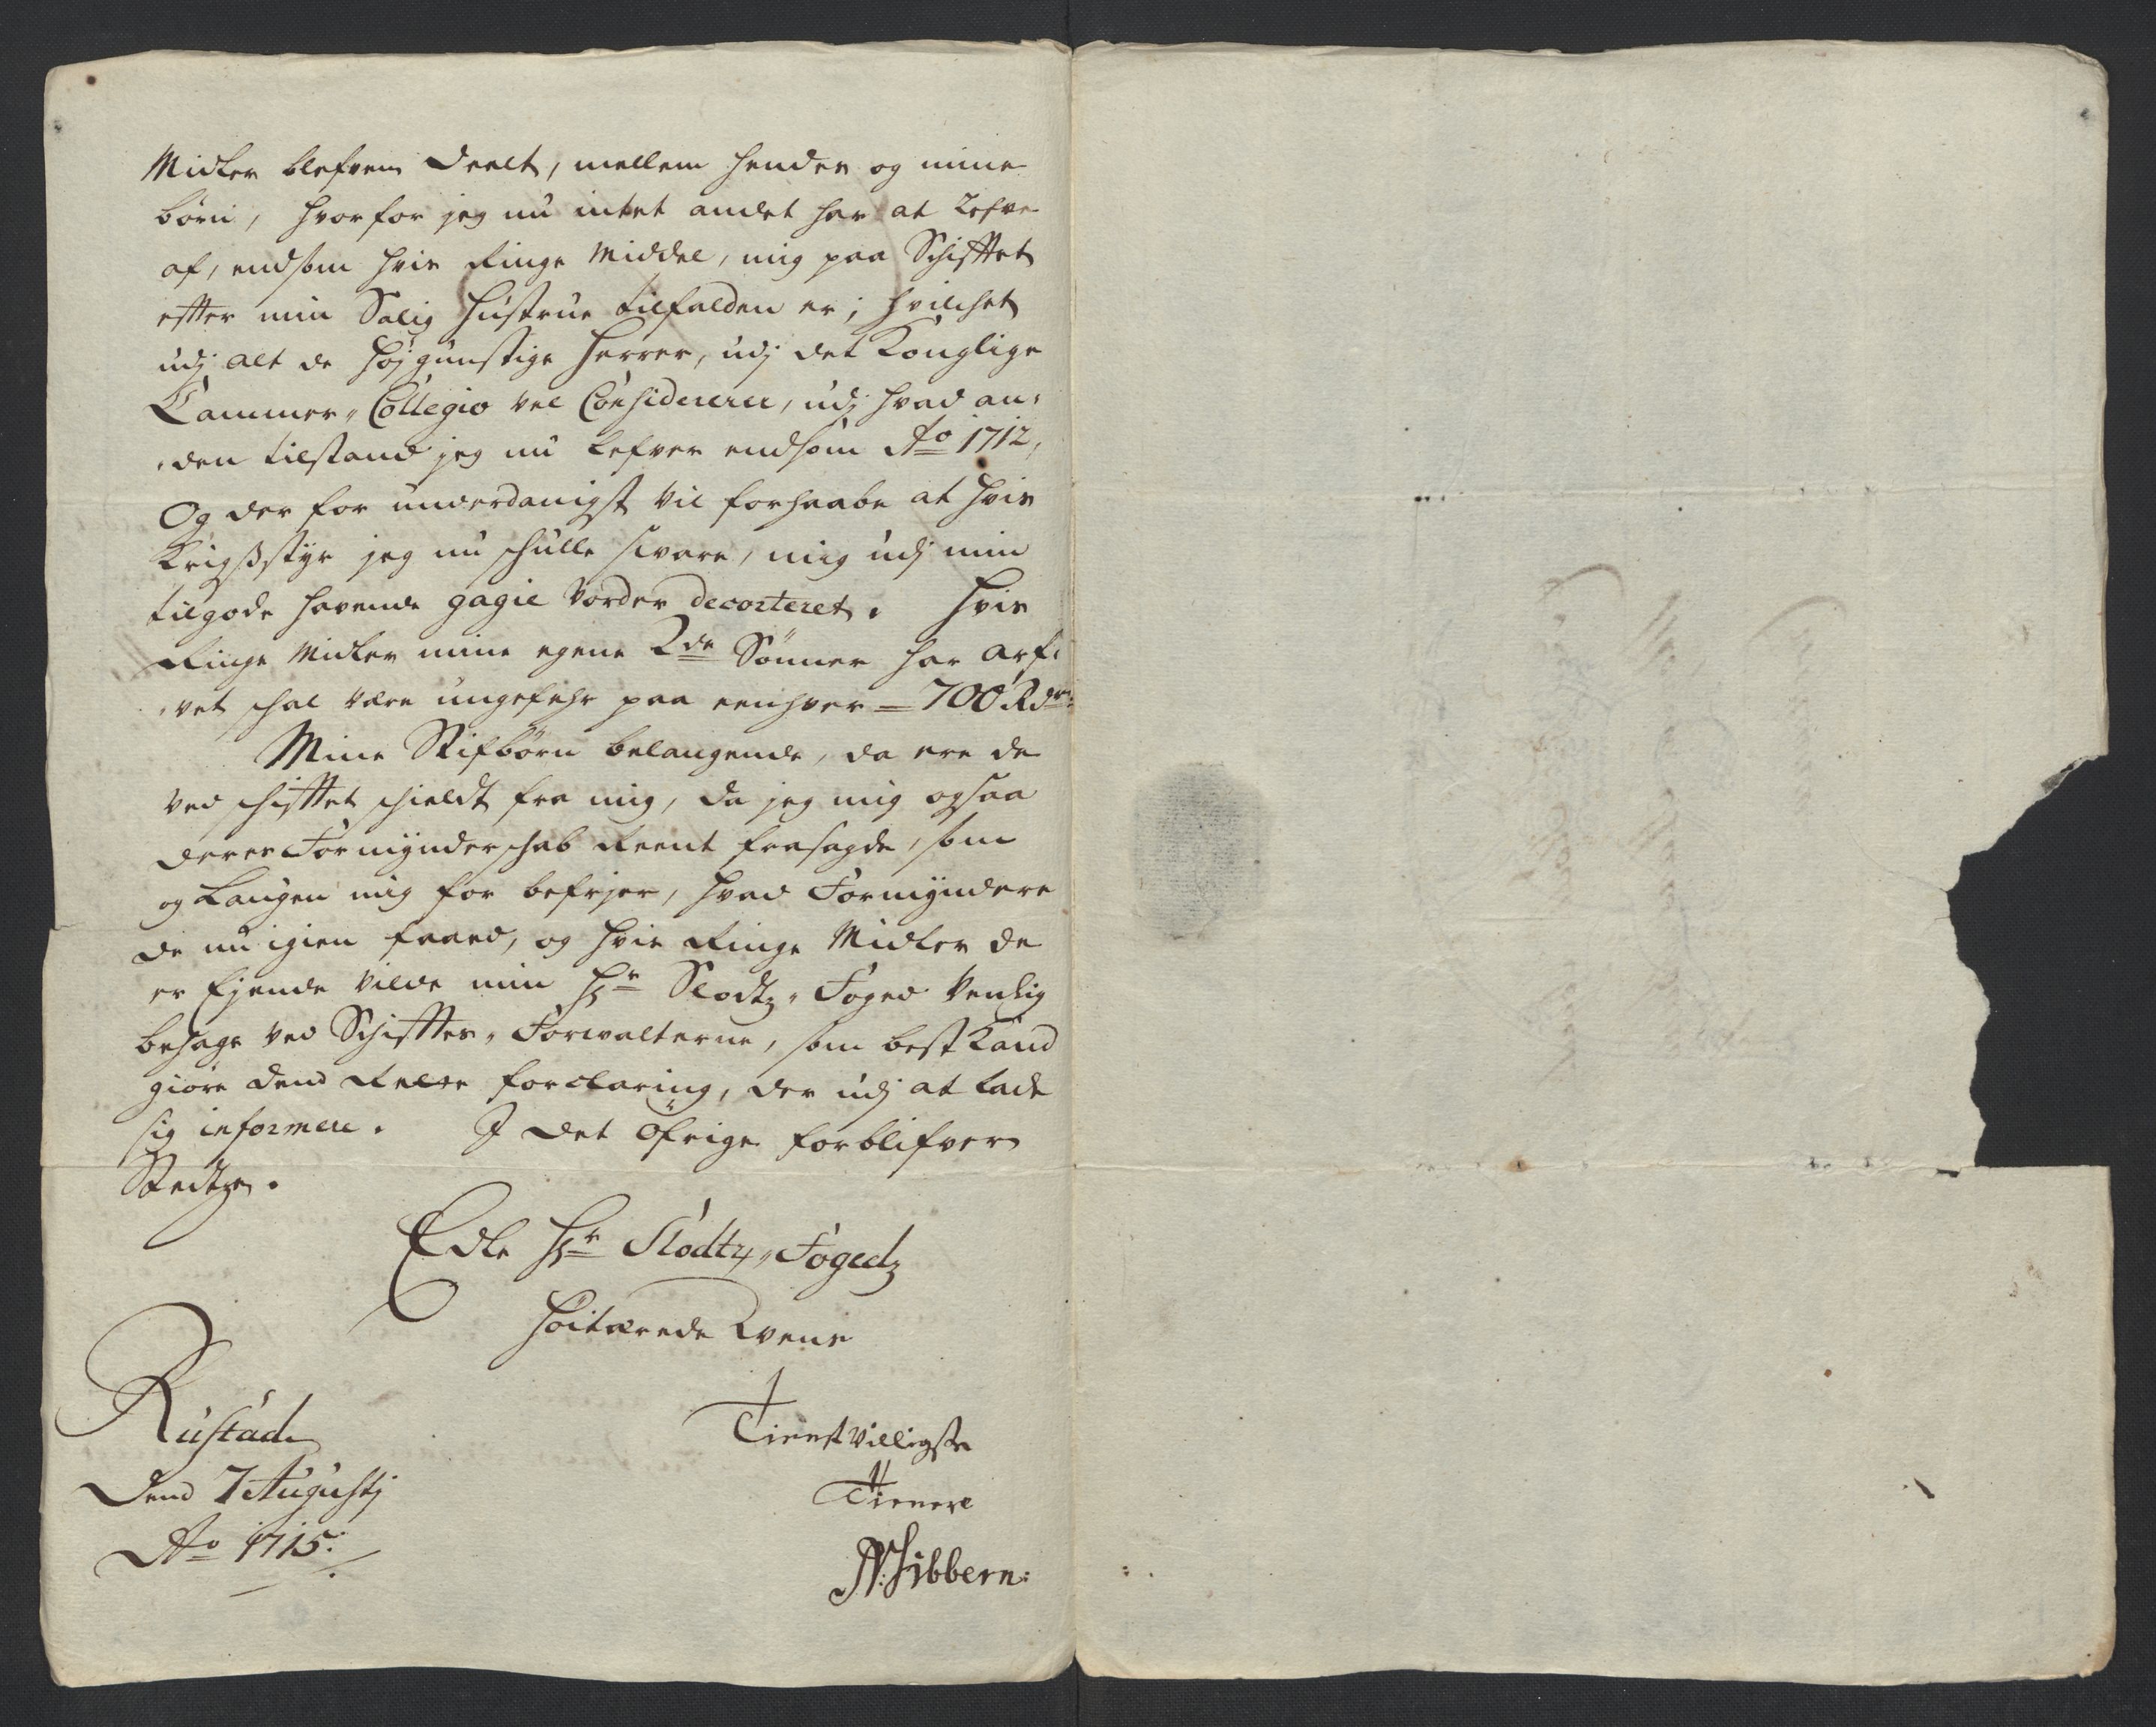 Midler blefven deelt, mellem hendes og mine
börn, hvorfor jeg nu intet andet har at lefve
af, endsom hvis Ringe Middel, mig paa Schifftet
effter min Salig Hustrue tilfalden er; hvilchet
udj alt de højgunstige Herrer, udj det Konglige
Cammer„ Collegio vel Considererer, udj hvad an„
„den tilstand jeg nu lefver endsom Ao 1712,
Og der for underdanigst vil forhaabe at hvis
Krigsstyr jeg nu schulle svare, mig udj min
tilgode havende gagie vorder decorteret. Hvis
Ringe Midler mine egene 2de Sönner har arf„
„vet schal være ungefehr paa eenhver – 700 Rdr:
Mine Stifbörn belangende, da ere de
ved schifftet schieldt fra mig, da jeg mig ogsaa
deres Formynderschab Reent frasagde, som
og Laugen mig for befrjer, hvad Formyndere
de nu igien faaed, og hvis Ringe Midler de
er Ejende vilde min Hr Slodtz„ Foged venlig
behage ved Schifftes„ Forvalterne, som best kand
giöre dend Rette forclaring, der udj at lade
sig informere. I det öfrige forblifver
Stedtze.
Edle Hr Slodtz„ Fogedz
Höitærede Vens
Rustad
Dend 7 Augustj
Ao 1715.
Tienstvilligste
Tienere
N: Hibbern: